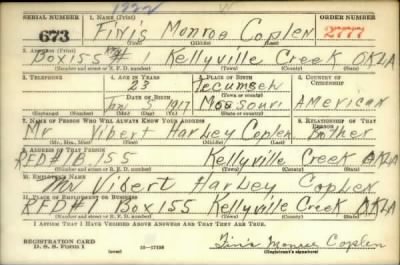 SERIAL NUMBER 1. NAME (Print) ORDER NUMBER
673 Finis Monroe Coplen 2777
2. ADDRESS (Print)
Box 155 #1 Kellyville Creek OKLA
(Number and street or R. F. D. number) (Town) (County) (State)
3. TELEPHONE 4. AGE IN YEARS 5. PLACE OF BIRTH 6. COUNTRY OF CITIZENSHIP
23 Tecumseh
DATE OF BIRTH (Town or county)
5 1917 Missouri American
(Mo.) (Day) (Yr.) (State or country)
7. NAME OF PERSON WHO WILL ALWAYS KNOW YOUR ADDRESS 8. RELATIONSHIP OF THAT PERSON
Mr Vibert Harley Coplen Brother
9. ADDRESS OF THAT PERSON
RFD#1 B, 155 Kellyville Creek OKLA
(Number and street or R. F. D. number) (Town) (County) (State)
10. EMPLOYER'S NAME
Mr Vibert Harley Coplen
11. PLACE OF EMPLOYMENT OR BUSINESS
RFD#1 Box 155 Kellyville Creek OKLA
(Number and street or R. F. D. number) (Town) (County) (State)
I AFFIRM THAT I HAVE VERIFIED ABOVE ANSWERS AND THAT THEY ARE TRUE.
REGISTRATION CARD
D. S. S. Form 1 16—17105 Finis Monroe Coplen